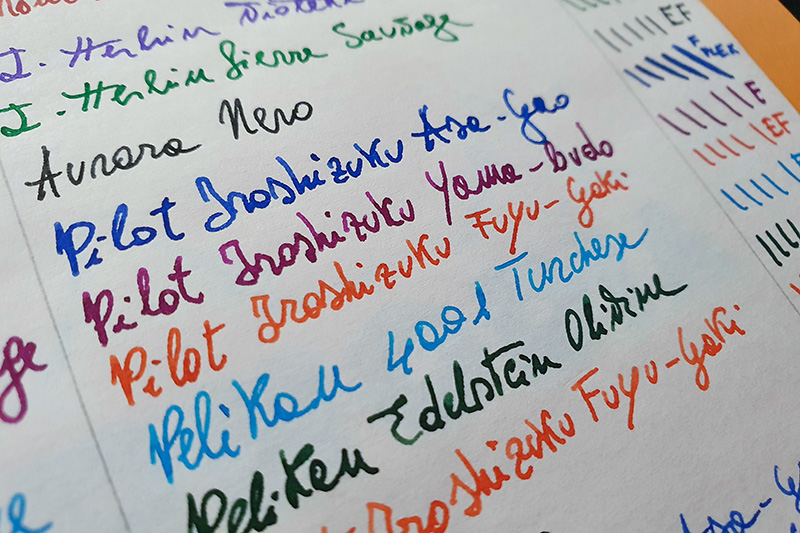 J. Herbin
J. Herbin Lierre Sauvage
Aurora Nero EF
Pilot Iroshizuku Asa-Gao F FLEX
Pilot Iroshizuku Yama-budo F
Pilot Iroshizuku Fuyu-Gaki EF
Pelikan 4001 Turchese
Pelikan Edelstein Olivine
Iroshizuku Fuyu-Gaki
Asa-G